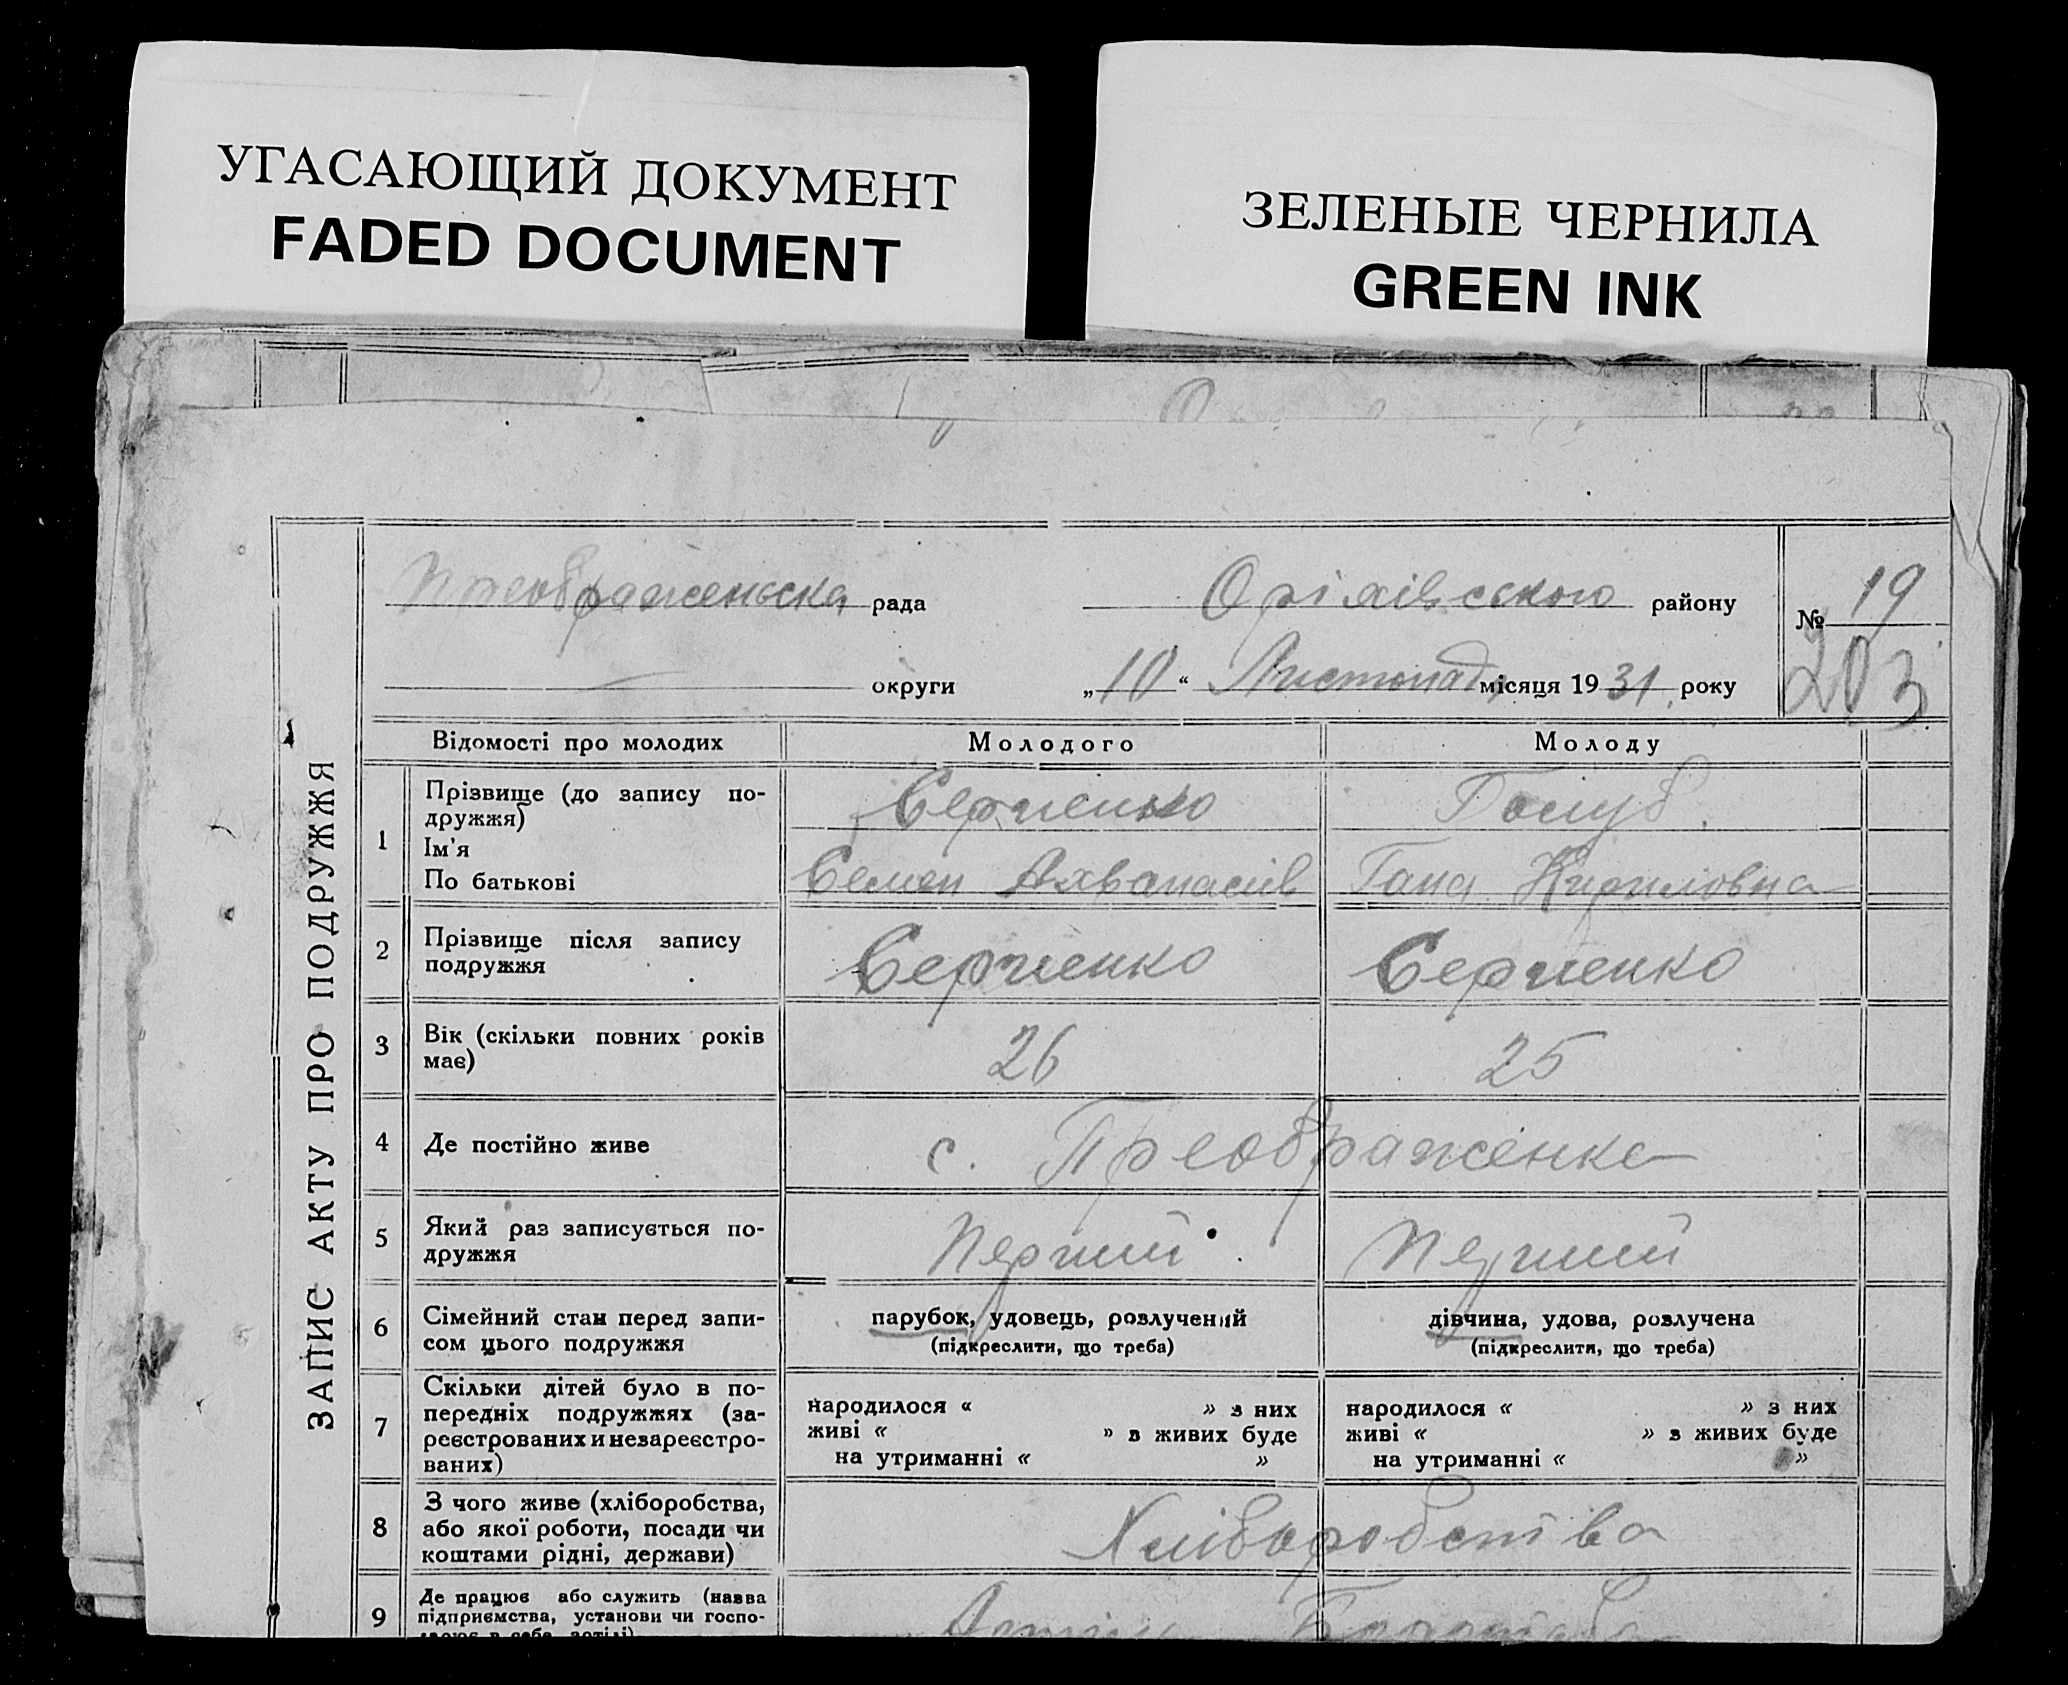 УГАСАЮЩИЙ ДОКУМЕНТ
FADED DOCUMENT
ЗЕЛЕНЫЕ ЧЕРНИЛА
GREEN INK
ЗАПИС АКТУ ПРО ПОДРУЖЖЯ
Преображенська рада Оріхівського району № 19
округи „10“ Листопад місяця 1931 року 203
Відомості про молодих Молодого Молоду
1 Прізвище (до запису по-
дружжя) Серпенко Голуб
Ім'я
По батькові Семен Ахванасів Гана Кириловна
2 Прізвище після запису
подружжя Серпенко Серпенко
3 Вік (скільки повних років
має) 26 25
4 Де постійно живе с. Преображенка
5 Який раз записується по-
дружжя Перший Перший
6 Сімейний стан перед запи-
сом цього подружжя
парубок, удовець, розлучений дівчина, удова, розлучена
(підкреслити, що треба) (підкреслити, що треба)
7 Скільки дітей було в по-
передніх подружжях (за-
реєстрованих и незареєстро-
ваних)
народилося « » з них народилося « » з них
живі « » з живих буде живі « » з живих буде
на утриманні « » на утриманні « »
8 З чого живе (хліборобства,
або якої роботи, посади чи
коштами рідні, держави) Хліборобства
9 Де працює або служить (назва
підприємства, установи чи госпо-